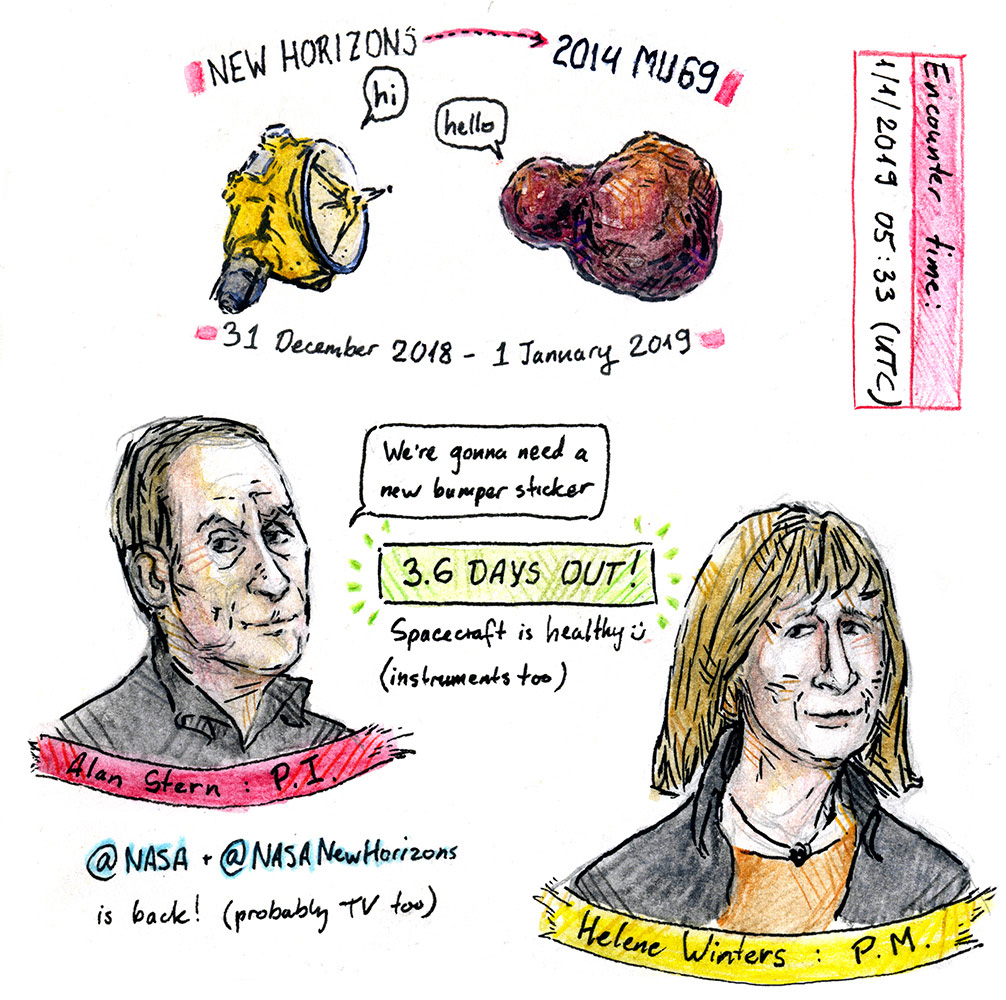 NEW HORIZONS
2014 MU69
hi
hello
Encounter time:
1/1/2019 05:33 (UTC)
31 December 2018 - 1 January 2019
We're gonna need a
new bumper sticker
3.6 DAYS OUT!
Spacecraft is healthy
(instruments too)
Alan Stern : P.I.
@NASA + @NASANewHorizons
is back! (probably TV too)
Helene Winters : P.M.